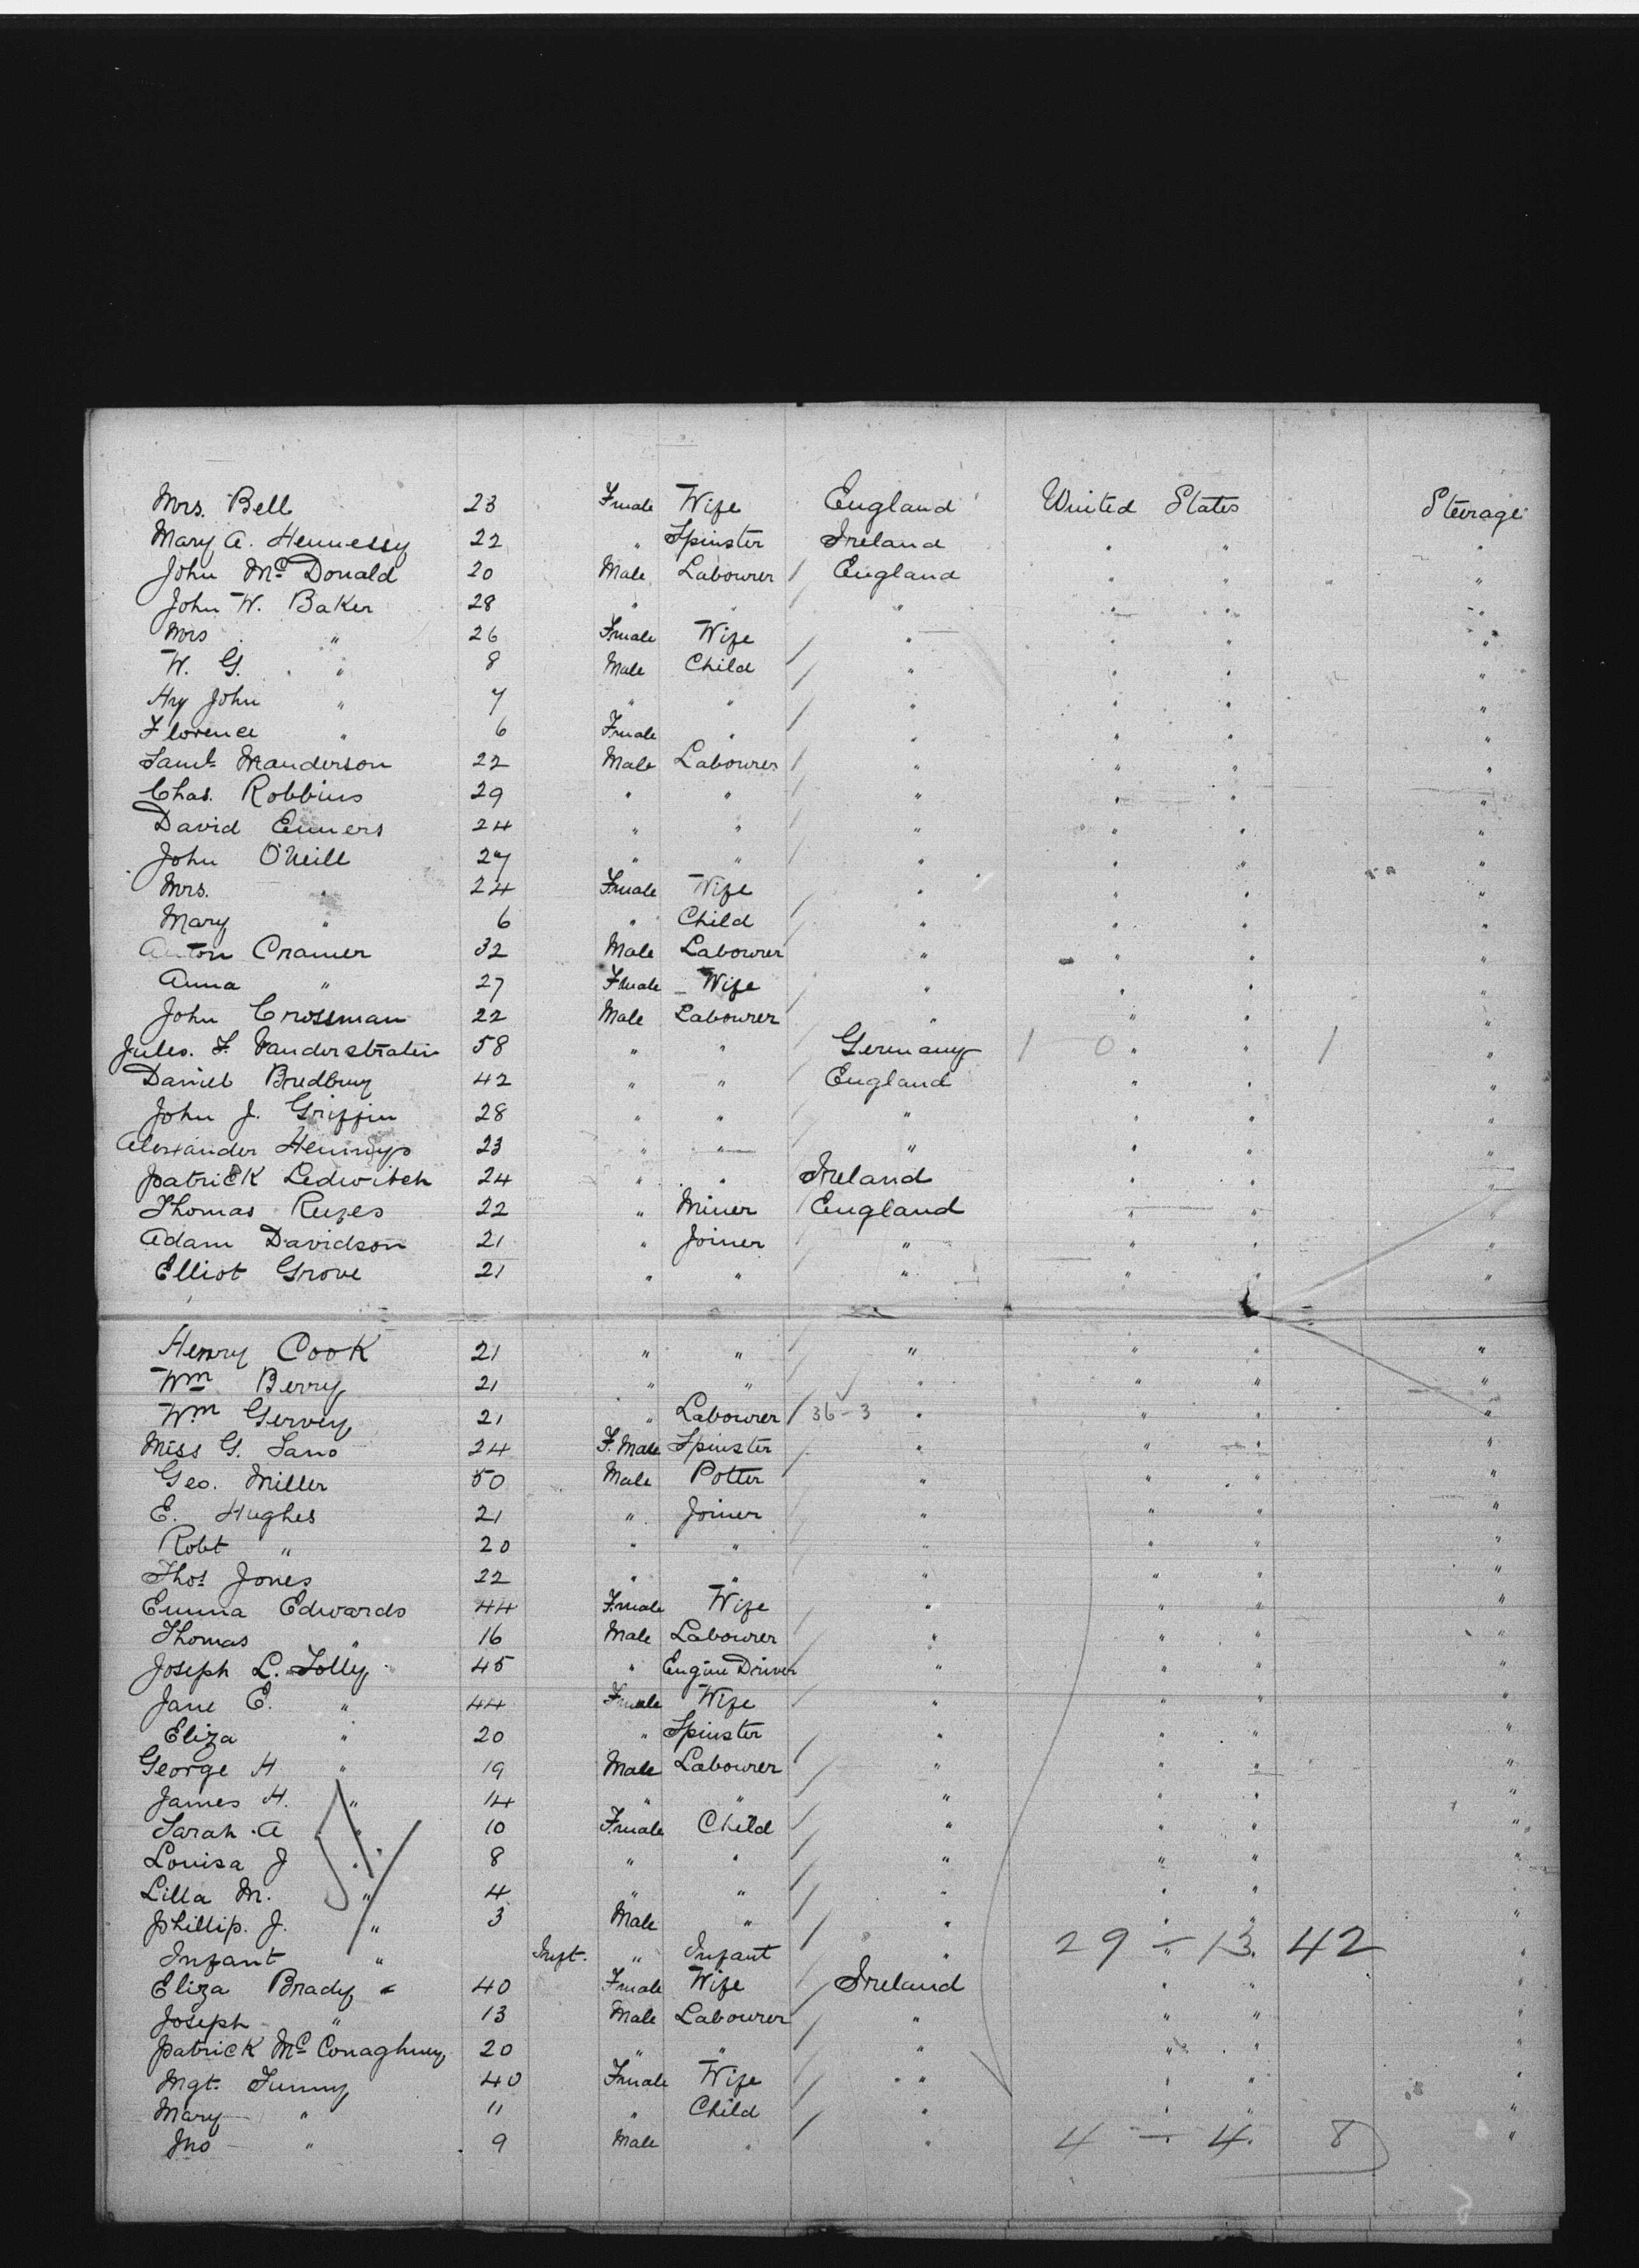 Mrs. Bell 23 Female Wife England United States Steerage
Mary A. Hennessy 22 " Spinster Ireland " " "
John Mc Donald 20 Male Labourer / England " " "
John W. Baker 28 " " / " " " "
Mrs " 26 Female Wife / " " " "
W. G. " 8 Male Child / " " " "
Hy John " 7 " " / " " " "
Florence " 6 Female " " " " "
Saml Manderson 22 Male Labourer / " " " "
Chas. Robbins 29 " " / " " " "
David Emmers 24 " " / " " " "
John O'Neill 27 " " / " " " "
Mrs. " 24 Female Wife / " " " "
Mary " 6 " Child / " " " "
Anton Cramer 32 Male Labourer " " " "
Anna " 27 Female Wife / " " " "
John Crossman 22 Male Labourer " " " "
Jules. F. Vanderstratein 58 " " / Germany 1 0 " " 1 "
Daniel Bredbury 42 " " / England " " "
John J. Griffin 28 " " / " " " "
Alexander 23 " " / " " " "
Patrick Ledwitch 24 " " Ireland " " "
Thomas 22 " Miner / England " " "
Adam Davidson 21 " Joiner / " " " "
Elliot Grove 21 " " " " " "
Henry Cook 21 " " / " " " "
Wm Berry 21 " " / " " " "
Wm Gervey 21 " Labourer / 36-3 " " " "
Miss G. 24 F.Male Spinster / " " " "
Geo. Miller 50 Male Potter " " " "
E. Hughes 21 " Joiner / " " " "
Robt " 20 " " / " " " "
Thos Jones 22 " " " " " "
Emma Edwards 44 Female Wife / " " " "
Thomas " 16 Male Labourer / " " " "
Joseph L. Jolly 45 " Engine Driver " " " "
Jane E. " 44 Female Wife / " " " "
Eliza " 20 " Spinster / " " " "
George H " 19 Male Labourer / " " " "
James H. " 14 " " / " " " "
Sarah A " 10 Female Child / " " " "
Louisa J " 8 " " / " " " "
Lilla M. " 4 " " / " " " "
Phillip. J. " 3 Male " / " " " "
Infant " Inft. " Infant / " 29 - 13 42 "
Eliza Brady 40 Female Wife / Ireland " " "
Joseph " 13 Male Labourer / " " " "
Patrick Mc Conaghuey 20 " " / " " " "
Mgt. 40 Female Wife / " " " "
Mary " 11 " Child / " " " "
Jno " 9 Male " " 4 - 4 8 "